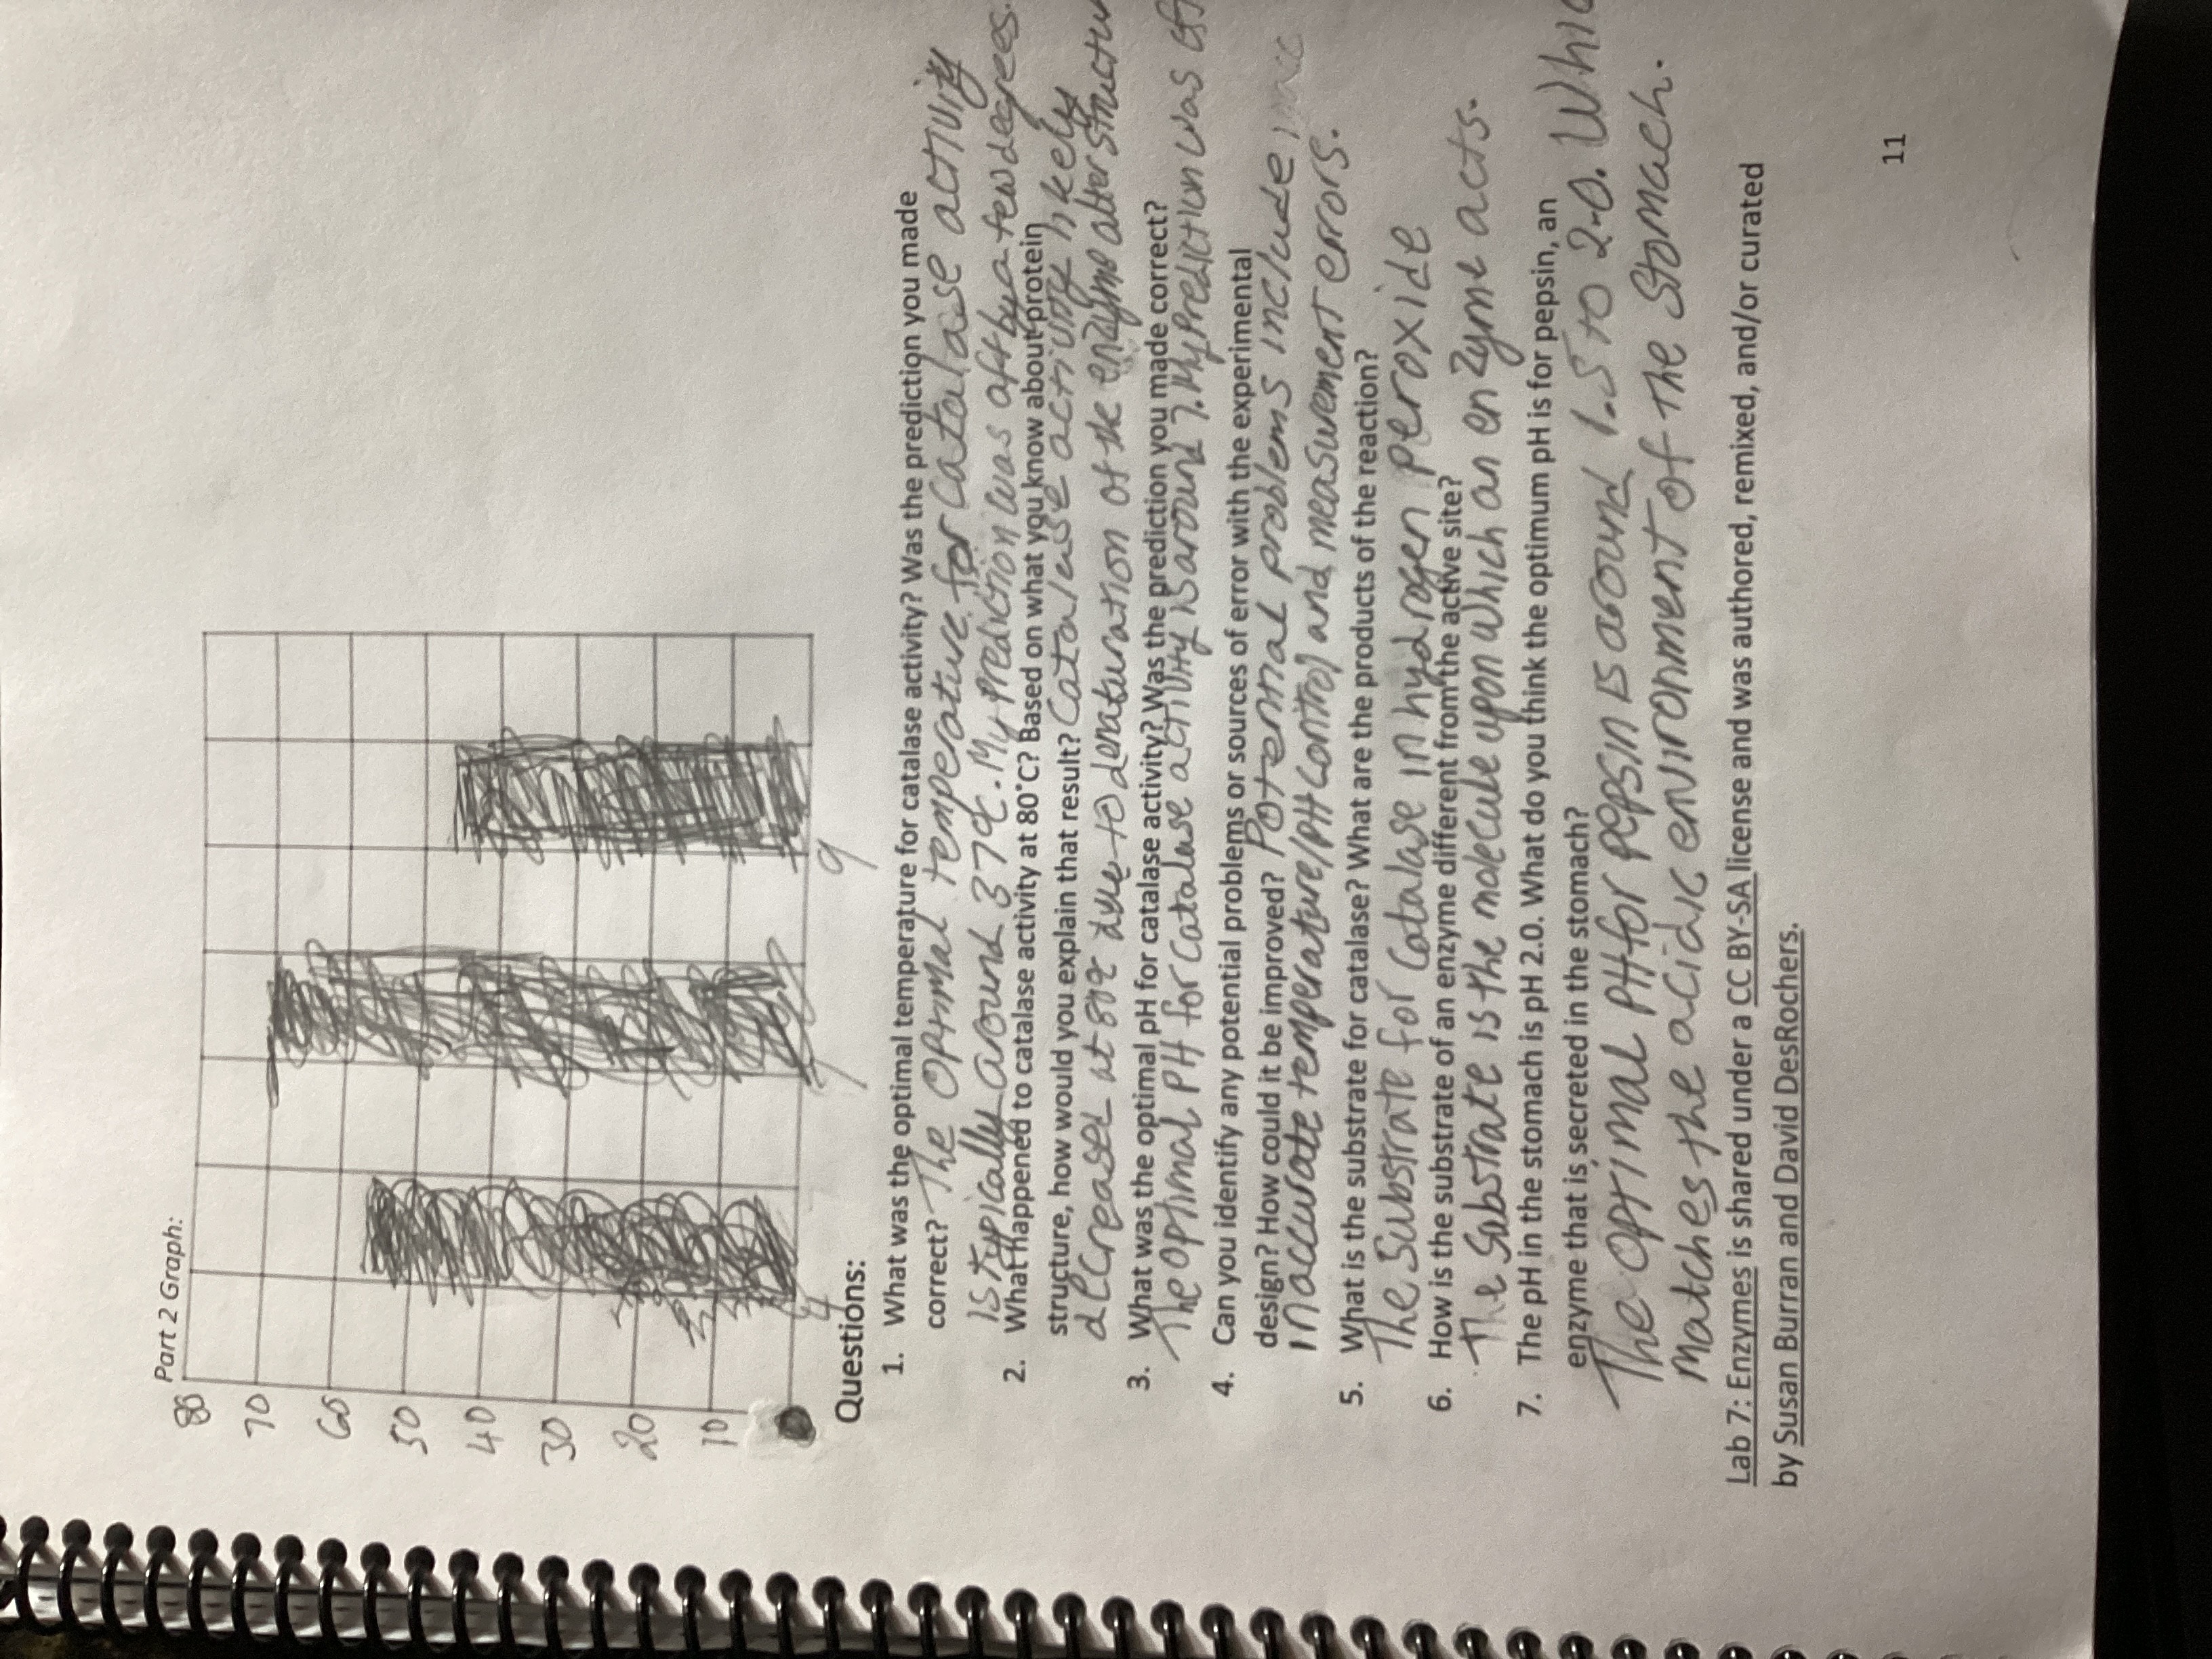 Part 2 Graph:
80
70
60
50
40
30
20
10
0
4 7 9
Questions:
1. What was the optimal temperature for catalase activity? Was the prediction you made
correct? The optimal temperature for catalase activity
is typically around 37°C. My prediction was off by a few degrees.
2. What happened to catalase activity at 80°C? Based on what you know about protein
structure, how would you explain that result? Catalase activity likely
decreased at 80°C due to denaturation of the enzyme alter structu
3. What was the optimal pH for catalase activity? Was the prediction you made correct?
The optimal PH for catalase activity is around 7. My Prediction was
4. Can you identify any potential problems or sources of error with the experimental
design? How could it be improved? Potential problems include
inaccurate temperature/pH control and measurement errors.
5. What is the substrate for catalase? What are the products of the reaction?
The Substrate for catalase in hydrogen peroxide
6. How is the substrate of an enzyme different from the active site?
The Substrate is the molecule upon which an enzyme acts.
7. The pH in the stomach is pH 2.0. What do you think the optimum pH is for pepsin, an
enzyme that is secreted in the stomach?
The optimal pH for pepsin is around 1.5 to 2-0. Whic
matches the acidic environment of the Stomach.
Lab 7: Enzymes is shared under a CC BY-SA license and was authored, remixed, and/or curated
by Susan Burran and David DesRochers.
11